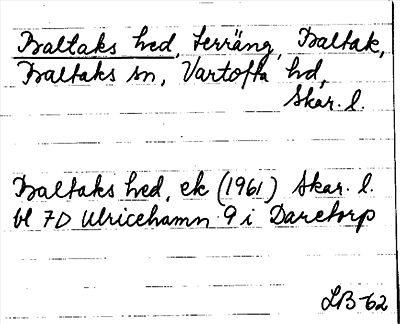 Baltaks hed, terräng, Baltak,
Baltaks sn, Vartofta hd,
Skar. l.
Baltaks hed, ek (1961) Skar. l.
bl 7D Ulricehamn 9 i Daretorp
LB-62